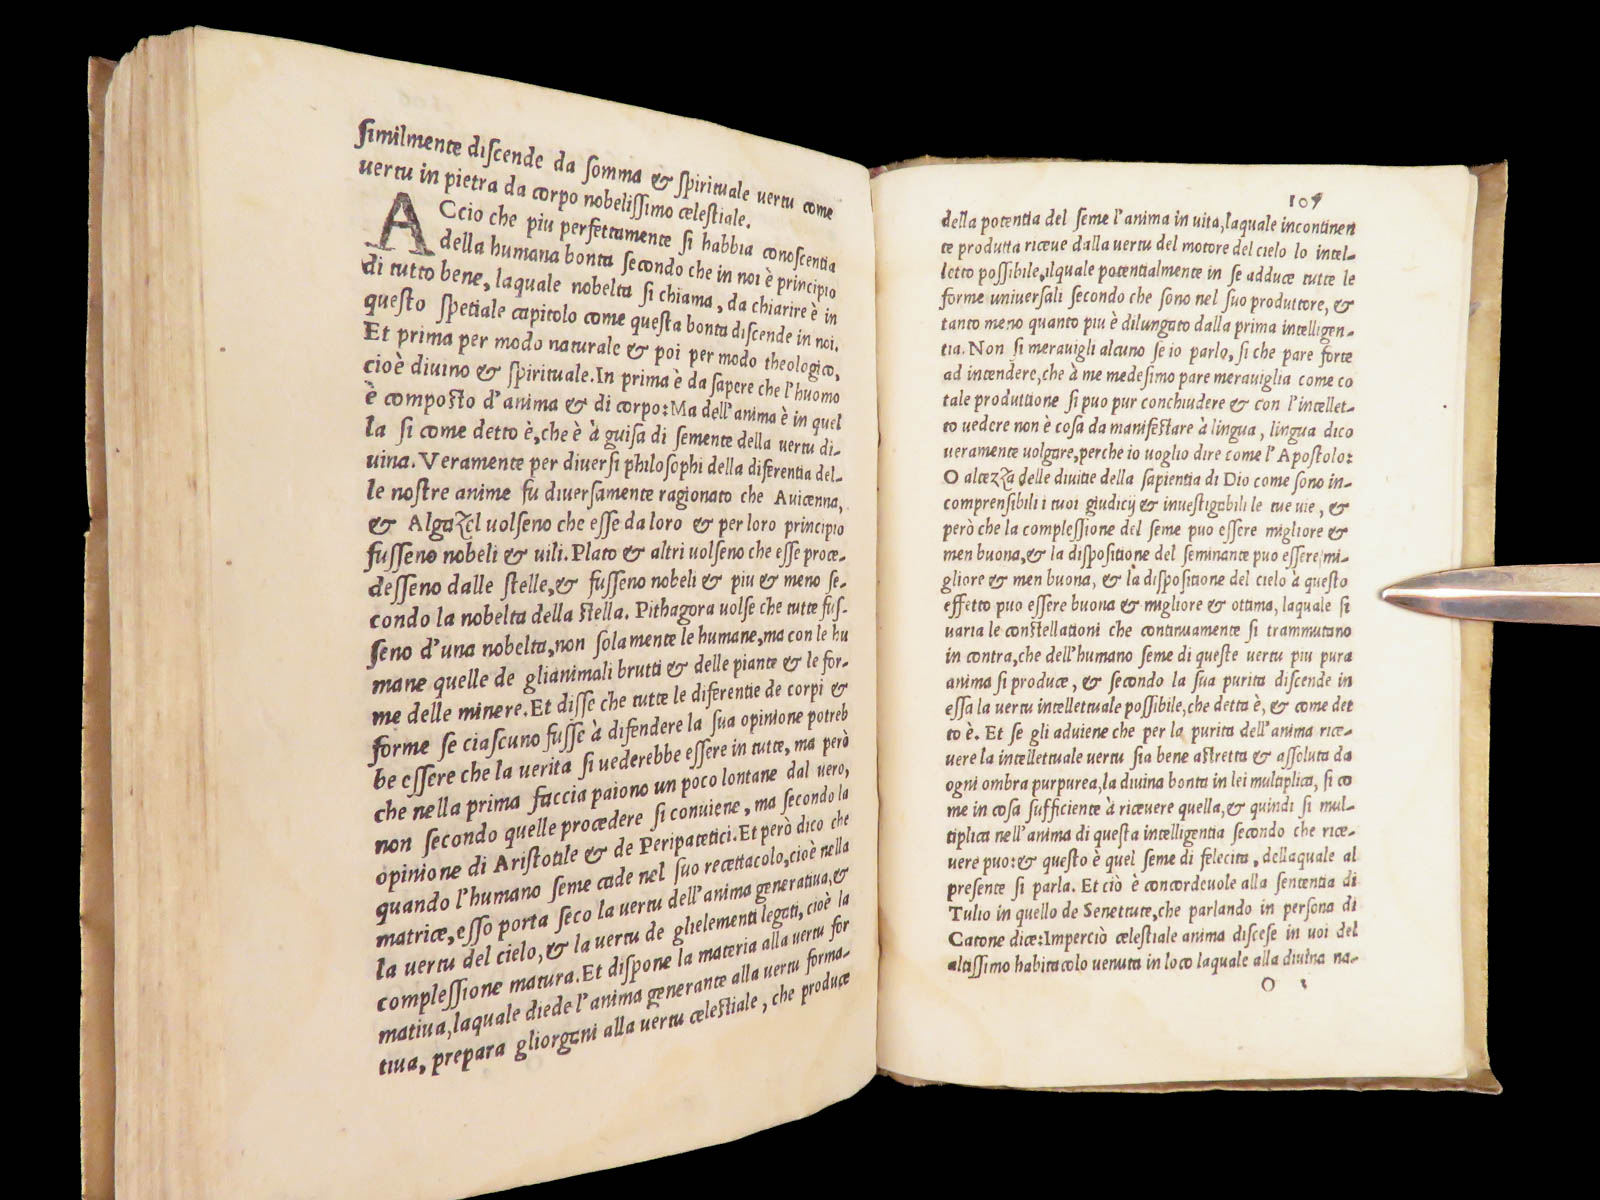 similmente discende da somma & spirituale uertu come
uertu in pietra da corpo nobelissimo celestiale.
ACcio che piu perfettamente si habbia conoscentia
della humana bonta secondo che in noi è principio
di tutto bene, laquale nobelta si chiama, da chiarire è in
questo spetiale capitolo come questa bonta discende in noi.
Et prima per modo naturale & poi per modo theologico,
cioè diuino & spirituale. In prima è da sapere che l'huomo
è composto d'anima & di corpo: Ma dell'anima è in quel
la si come detto è, che è à guisa di semente della uertu di-
uina. Veramente per diuersi philosophi della diferentia del-
le nostre anime fù diuersamente ragionato che Auicenna,
& Algazel uolseno che esse da loro & per loro principio
fusseno nobeli & uili. Plato & altri uolseno che esse proce-
desseno dalle stelle, & fusseno nobeli & piu & meno se-
condo la nobelta della stella. Pithagora uolse che tutte fus-
seno d'una nobelta, non solamente le humane, ma con le hu
mane quelle de glianimali brutti & delle piante & le for-
me delle minere. Et disse che tutte le diferentie de corpi &
forme se ciascuno fusse à difendere la sua opinione potreb
be essere che la uerita si uederebbe essere in tutte, ma però
che nella prima faccia paiono un poco lontane dal uero,
non secondo quelle procedere si conuiene, ma secondo la
opinione di Aristotile & de Peripatetici. Et però dico che
quando l'humano seme cade nel suo recettacolo, cioè nella
matrice, esso porta seco la uertu dell'anima generatiua, &
la uertu del cielo, & la uertu de glielementi legati, cioè la
complessione matura. Et dispone la materia alla uertu for
matiua, laquale diede l'anima generante alla uertu forma-
tiua, prepara gliorgani alla uertu celestiale, che produce
107
della potentia del seme l'anima in uita, laquale incontinen
te produtta riceue dalla uertu del motore del cielo lo intel-
letto possibile, ilquale potentialmente in se adduce tutte le
forme uniuersali secondo che sono nel suo produttore, &
tanto meno quanto piu è dilungato dalla prima intelligen-
tia. Non si merauigli alcuno se io parlo, si che pare forte
ad intendere, che à me medesimo pare merauiglia come co
tale produttione si puo pur conchiudere & con l'intellet-
to uedere non è cosa da manifestare à lingua, lingua dico
ueramente uolgare, perche io uoglio dire come l'Apostolo:
O altezza delle diuitie della sapientia di Dio come sono in-
comprensibili i tuoi giudicij & inuestigabili le tue uie, &
però che la complessione del seme puo essere migliore &
men buona, & la dispositione del seminante puo essere mi-
gliore & men buona, & la dispositione del cielo à questo
effetto puo essere buona & migliore & ottima, laquale si
uaria le constellationi che continuamente si trammutano
in contra, che dell'humano seme di queste uertu piu pura
anima si produce, & secondo la sua purita discende in
essa la uertu intellettuale possibile, che detta è, & come det
to è. Et se gli aduiene che per la purita dell'anima rice-
uere la intellettuale uertu sia bene astretta & assoluta da
ogni ombra purpurea, la diuina bonta in lei multiplica, si co
me in cosa sufficiente à riceuere quella, & quindi si mul-
tiplica nell'anima di questa intelligentia secondo che rice-
uere puo: & questo è quel seme di felecita, dellaquale al
presente si parla. Et ciò è concordeuole alla sententia di
Tulio in quello de Senettute, che parlando in persona di
Catone dice: Imperciò celestiale anima discese in uoi del
altissimo habitacolo uenuta in loco laquale alla diuina na-
O